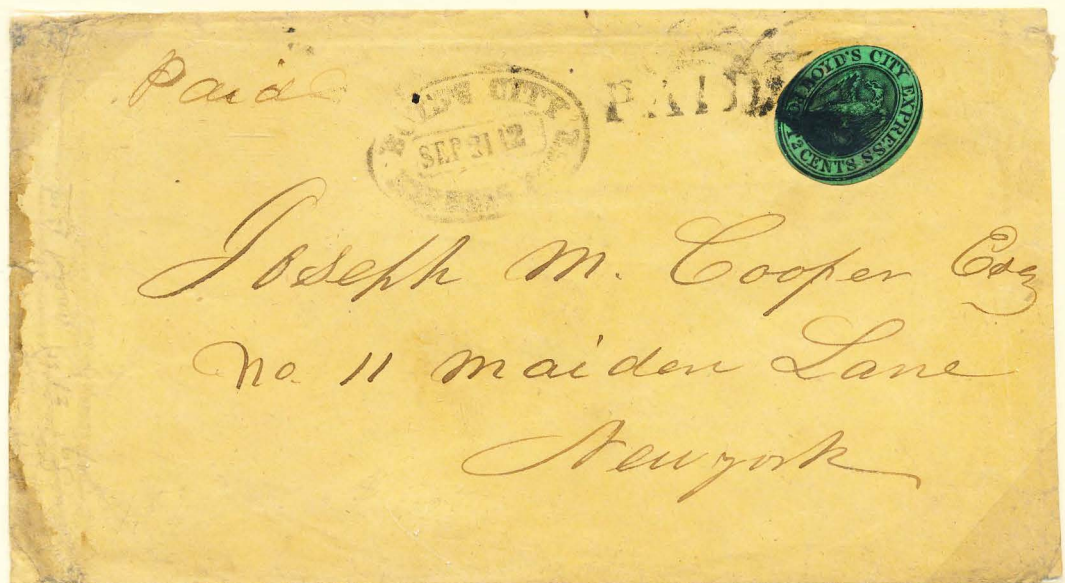 Paid
BOYD'S CITY
SEP 21 12
PAID
BOYD'S CITY EXPRESS
2 CENTS
Joseph M. Cooper Esq
No. 11 maiden Lane
New york